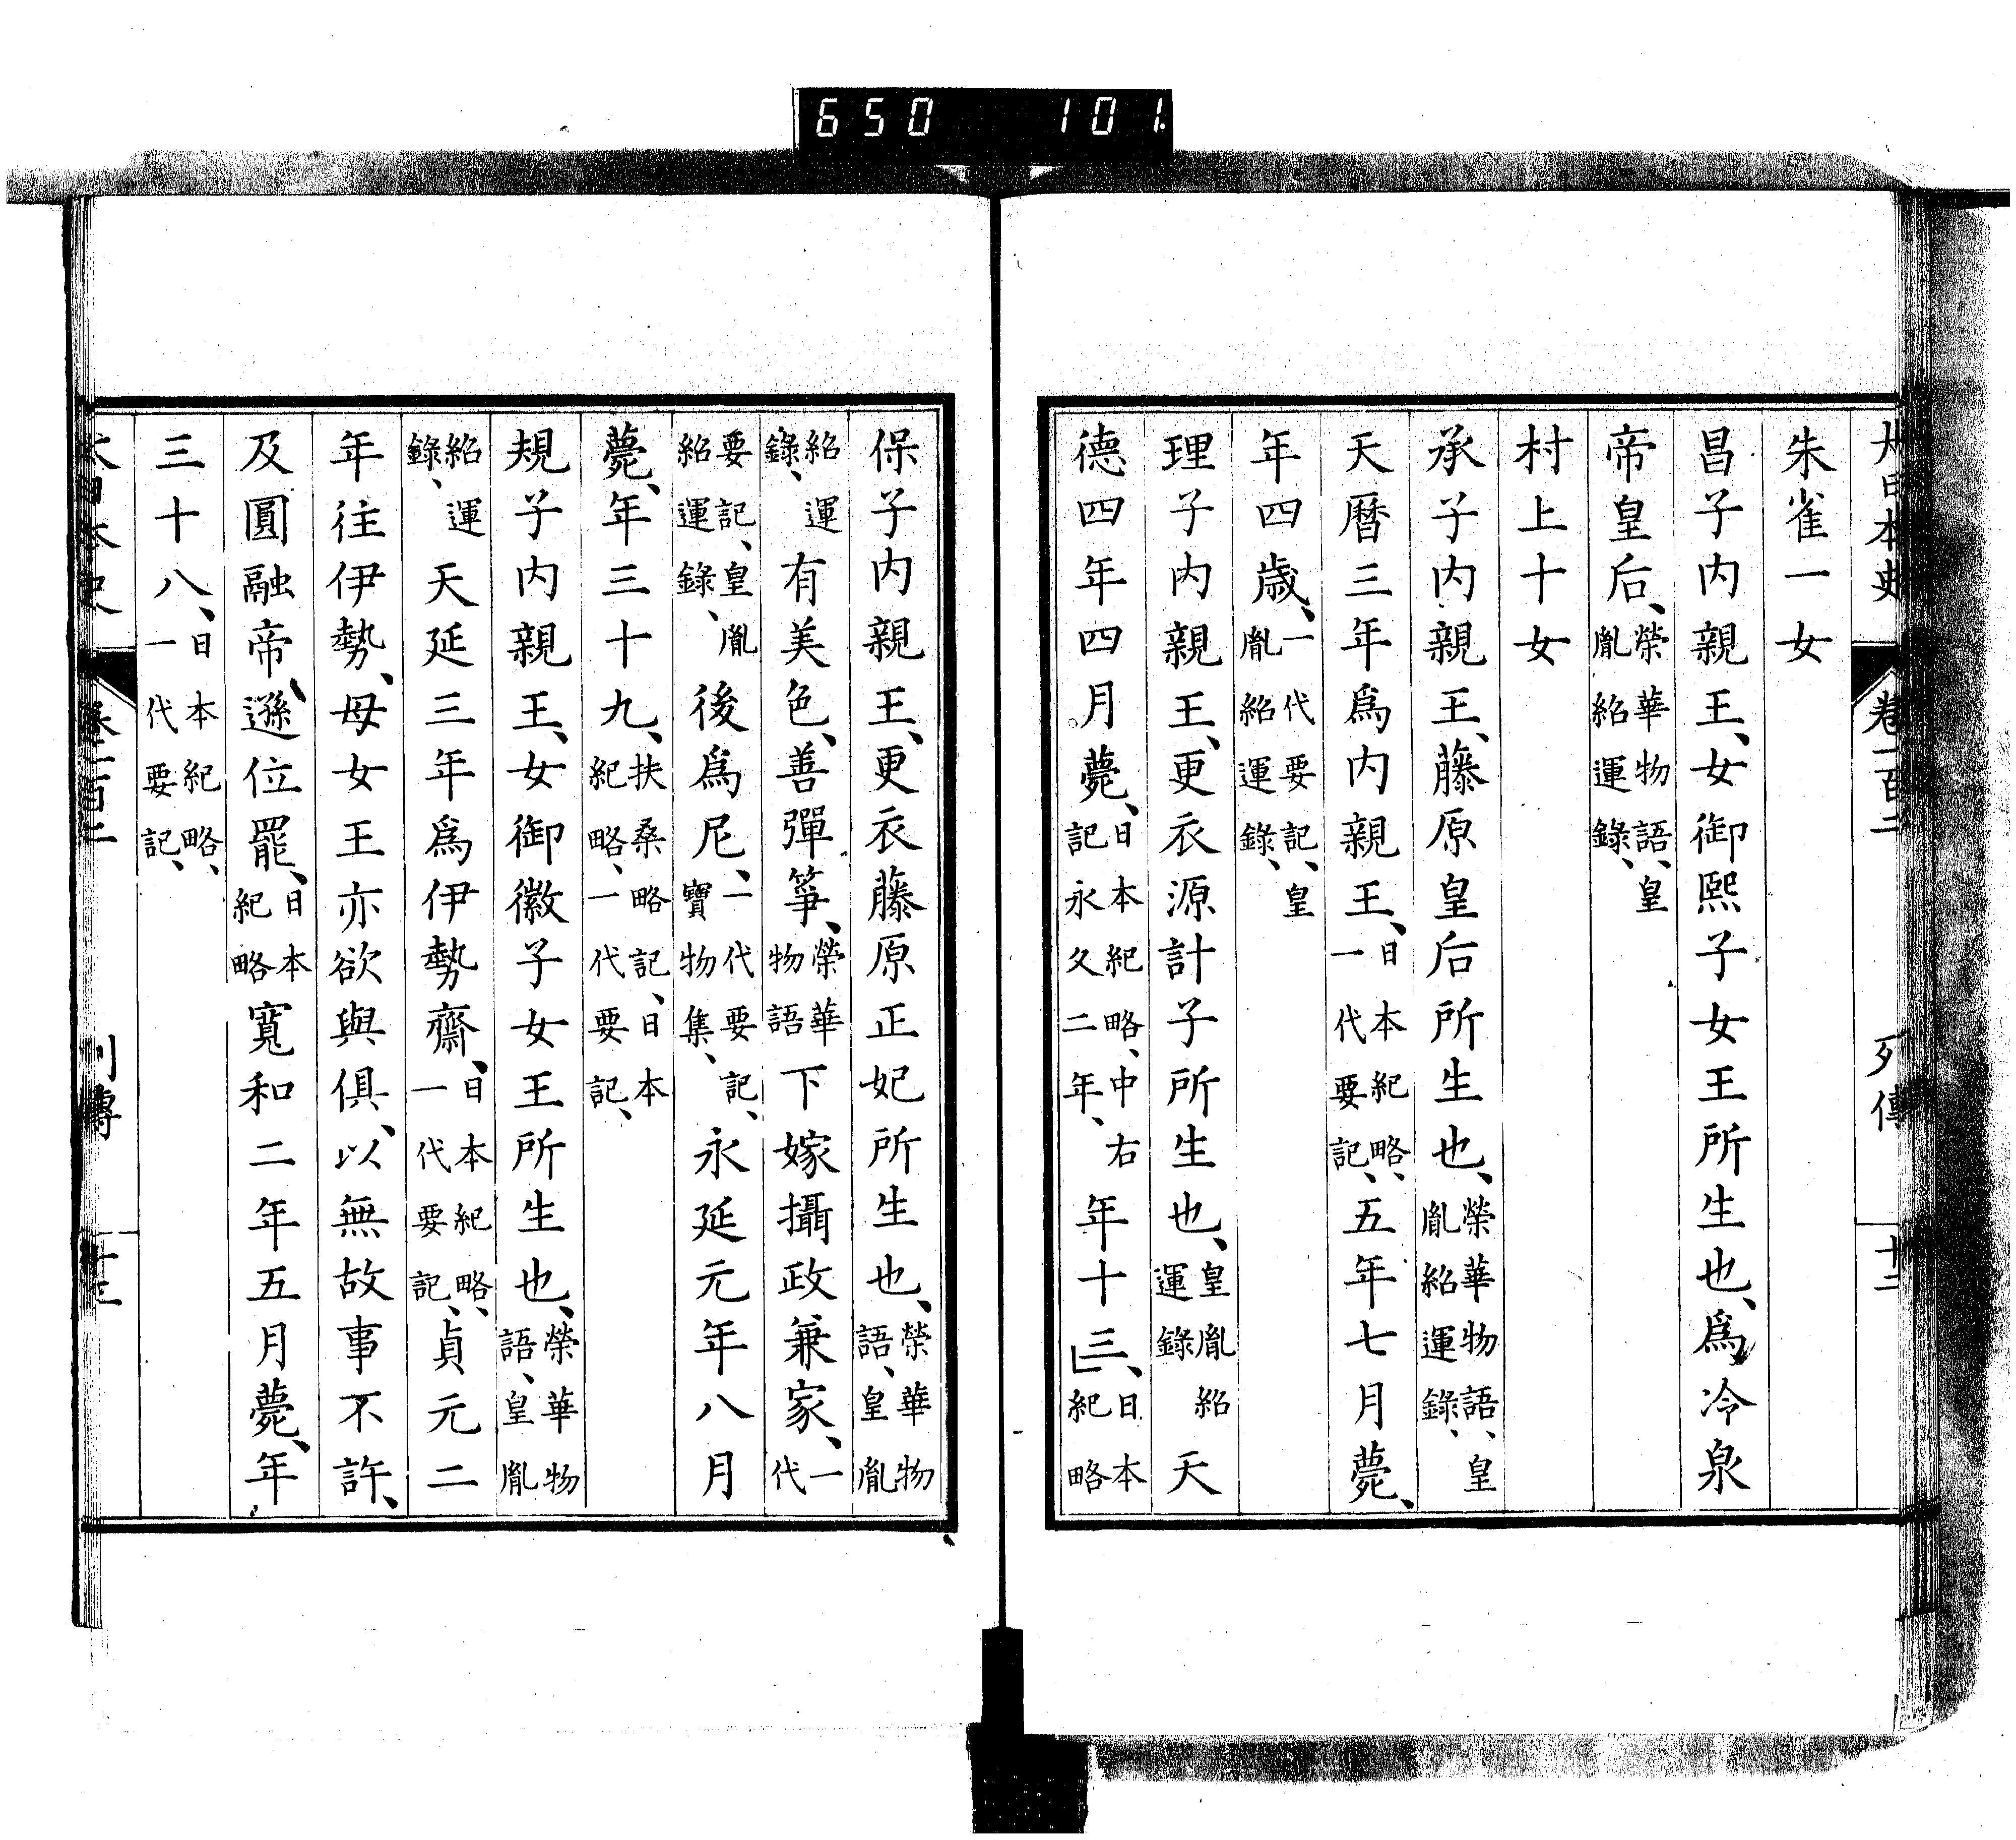 650 101.
大日本史 卷一百二 列傳 十二
朱雀一女
昌子内親王、女御熙子女王所生也、爲冷泉
帝皇后、榮華物語、皇胤紹運錄、
村上十女
承子内親王、藤原皇后所生也、榮華物語、皇胤紹運錄、
天曆三年爲内親王、日本紀略、一代要記、五年七月薨、
年四歲、一代要記、皇胤紹運錄、
理子内親王、更衣源計子所生也、皇胤紹運錄天
德四年四月薨、日本紀略、中右記永久二年、年十三、日本紀略
保子内親王、更衣藤原正妃所生也、榮華物語、皇胤
紹運錄、有美色、善彈箏、榮華物語下嫁攝政兼家、一代
要記、皇胤紹運錄、後爲尼、一代要記、寶物集、永延元年八月
薨、年三十九、扶桑略記、日本紀略、一代要記、
規子内親王、女御徽子女王所生也、榮華物語、皇胤
紹運錄、天延三年爲伊勢齋、日本紀略、一代要記、貞元二
年往伊勢、母女王亦欲與俱、以無故事不許、
及圓融帝遜位罷、日本紀略寬和二年五月薨、年
三十八、日本紀略、一代要記、
大日本史 卷一百二 列傳 十三